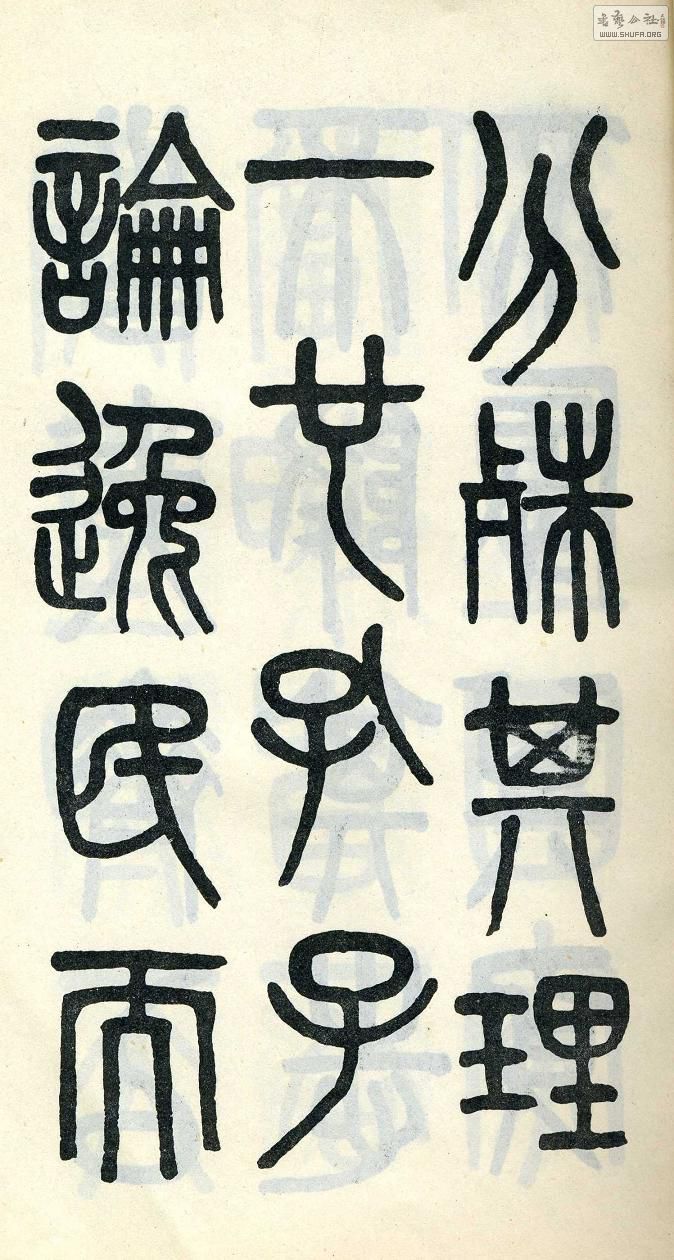 分殊其理
一也孔子
論逸民而
書藝公社
WWW.SHUFA.ORG